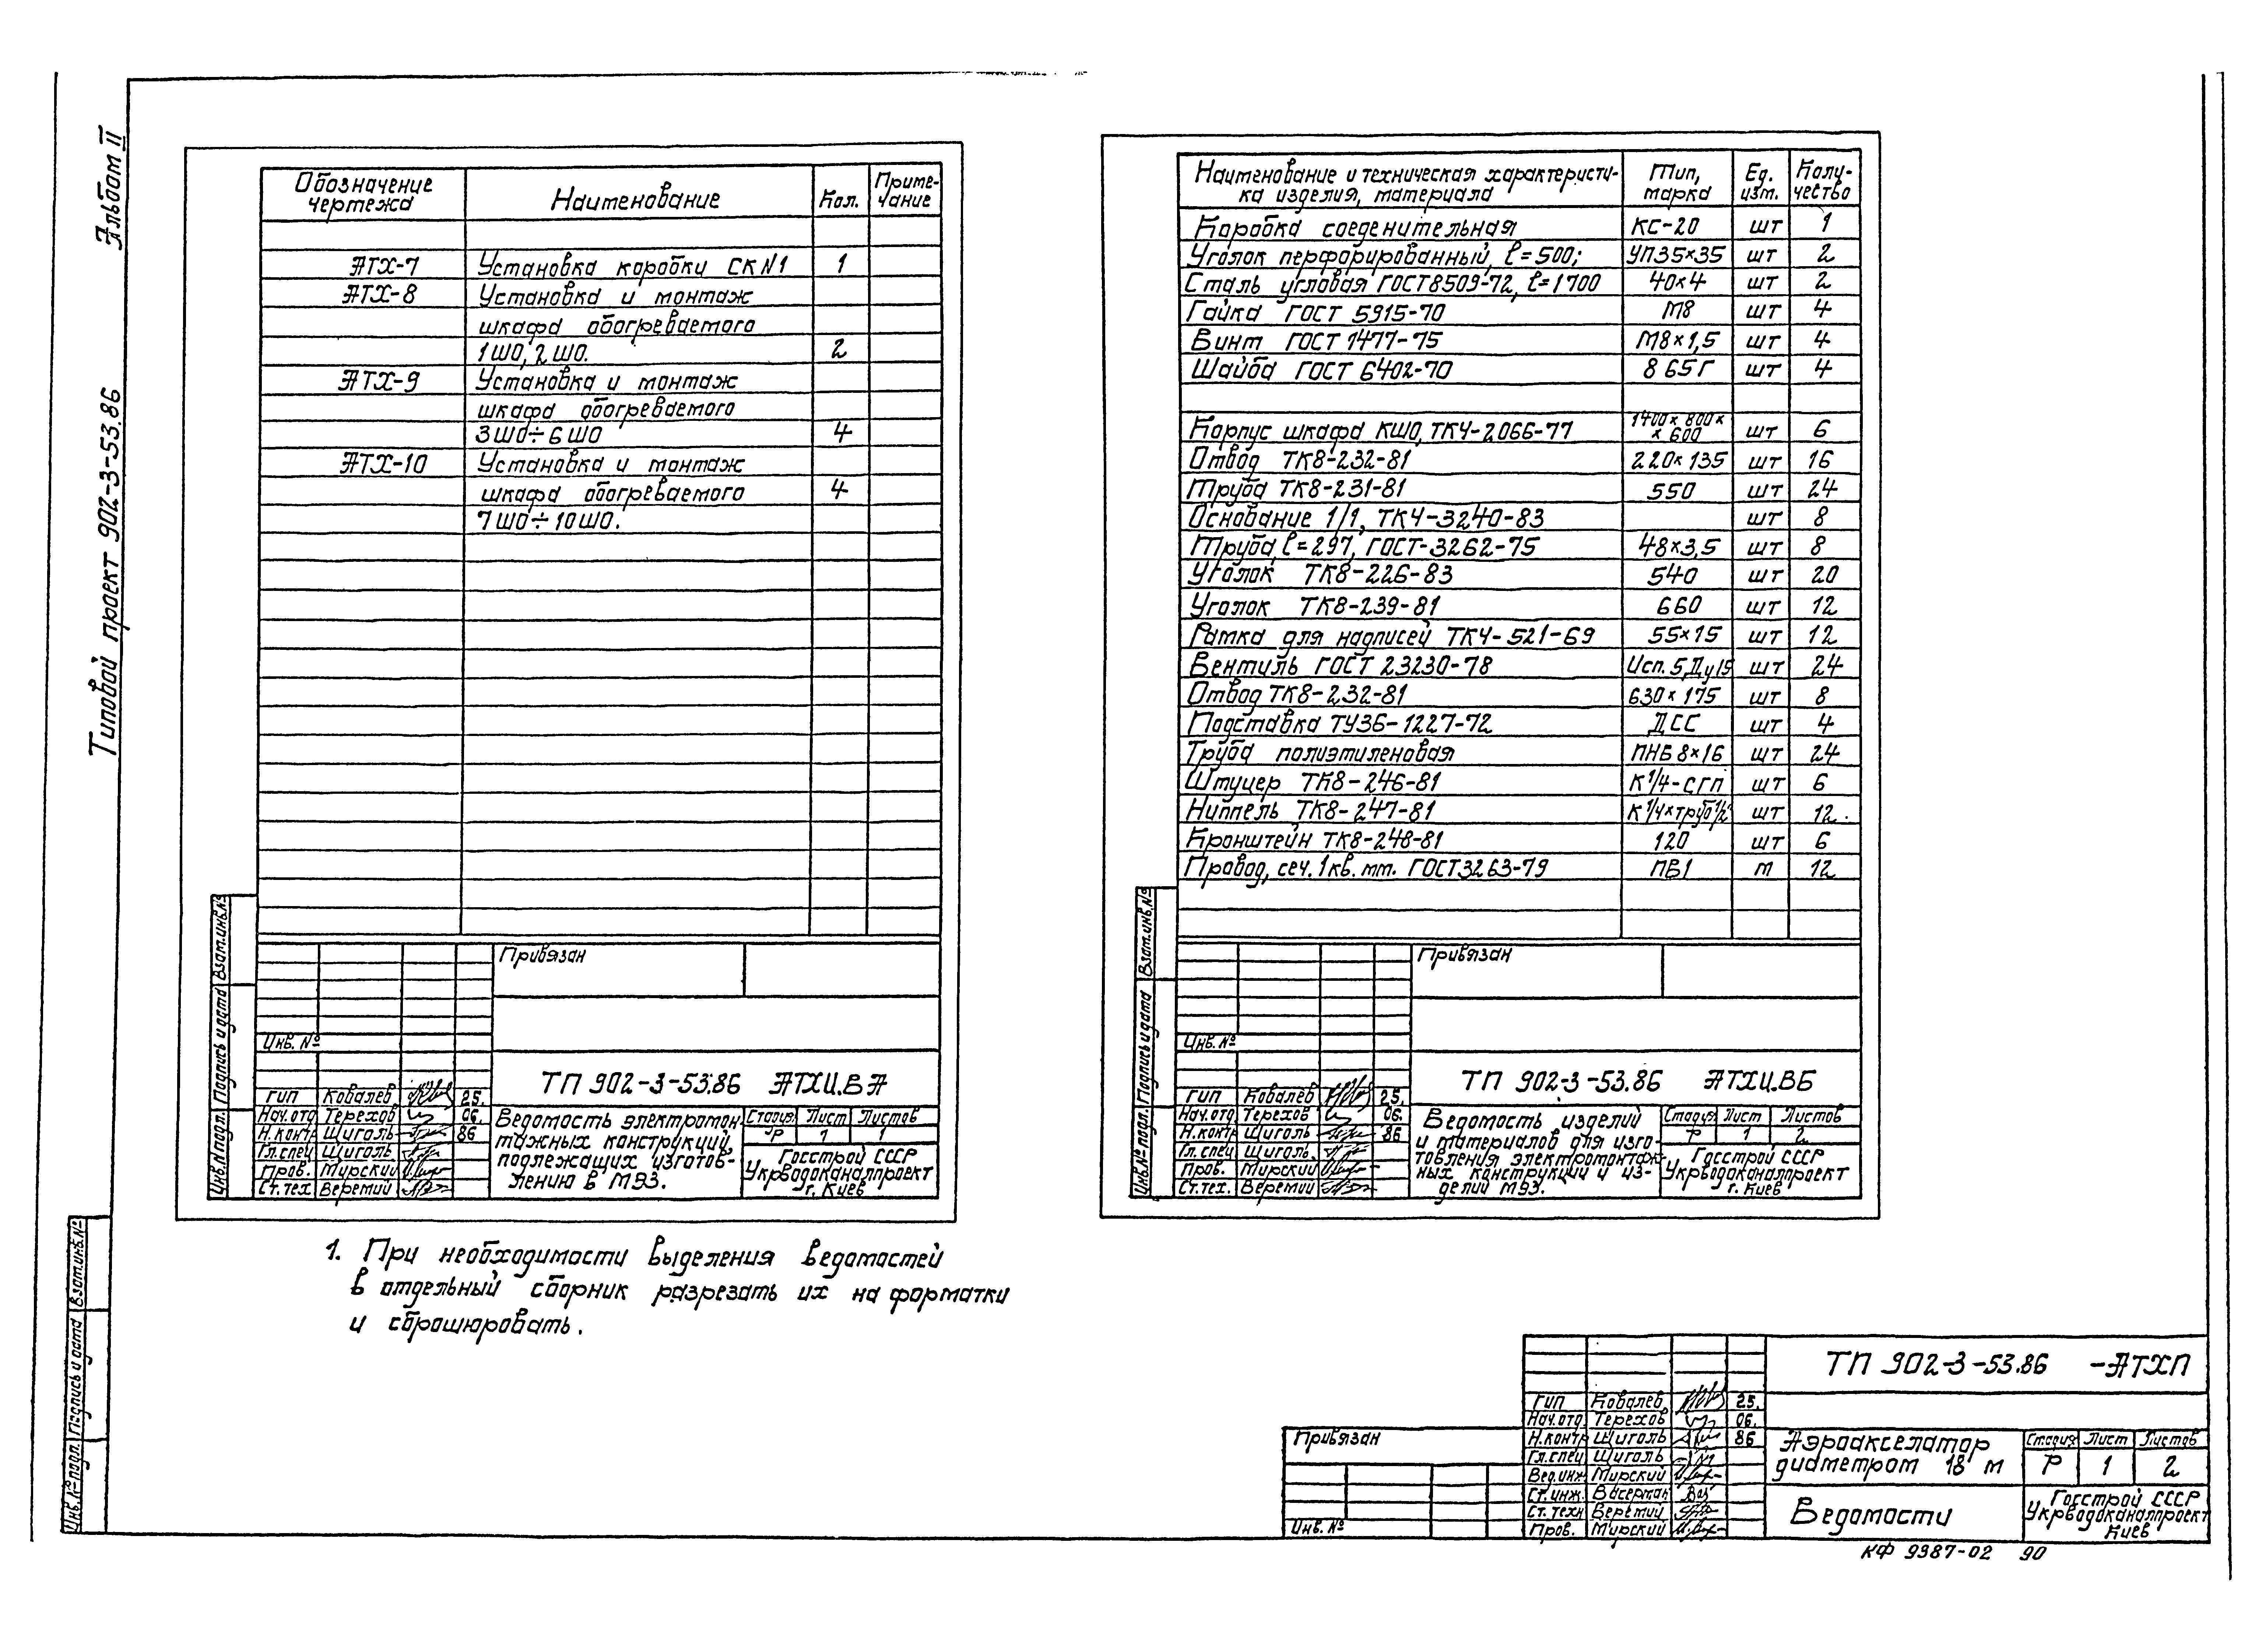 Альбом II
Типовой проект 902-3-53.86
Обозначение чертежа | Наименование | Кол. | Приме-чание
АТХ-7 | Установка коробки СК N1 | 1
АТХ-8 | Установка и монтаж
шкафа обогреваемого
1ШО, 2ШО. | 2
АТХ-9 | Установка и монтаж
шкафа обогреваемого
3ШО÷6ШО | 4
АТХ-10 | Установка и монтаж
шкафа обогреваемого | 4
7ШО÷10ШО.
Привязан
Инв. №
ТП 902-3-53.86 АТХИ.ВА
ГИП Ковалев 25.
Нач.отд Терехов 06.
Н.контр Щиголь 86
Гл.спец Щиголь
Пров. Мирский
Ст.тех Веремий
Ведомость электромон-
тажных конструкций,
подлежащих изготов-
лению в МЭЗ.
Стадия Лист Листов
Р 1 1
Госстрой СССР
Укрводоканалпроект
г. Киев
Инв.N подл. Подпись и дата Взам.инв.№
1. При необходимости выделения ведомостей
в отдельный сборник разрезать их на форматки
и сброшюровать.
Наименование и техническая характеристи-ка изделия, материала | Тип, марка | Ед. изм. | Коли-чество
Коробка соеденительная | КС-20 | шт | 1
Уголок перфорированный, l=500; | УП35×35 | шт | 2
Сталь угловая ГОСТ 8509-72, l=1700 | 40×4 | шт | 2
Гайка ГОСТ 5915-70 | М8 | шт | 4
Винт ГОСТ 1477-75 | М8×1,5 | шт | 4
Шайба ГОСТ 6402-70 | 8 65Г | шт | 4
Корпус шкафа КШО, ТК4-2066-77 | 1400×800××600 | шт | 6
Отвод ТК8-232-81 | 220×135 | шт | 16
Труба ТК8-231-81 | 550 | шт | 24
Основание 1/1, ТК4-3240-83 | шт | 8
Труба, l=297, ГОСТ-3262-75 | 48×3,5 | шт | 8
Уголок ТК8-226-83 | 540 | шт | 20
Уголок ТК8-239-81 | 660 | шт | 12
Рамка для надписей ТК4-521-69 | 55×15 | шт | 12
Вентиль ГОСТ 23230-78 | Исп. 5, Ду 15 | шт | 24
Отвод ТК8-232-81 | 630×175 | шт | 8
Подставка ТУ36-1227-72 | ДСС | шт | 4
Труба полиэтиленовая | ПНБ 8×16 | шт | 24
Штуцер ТК8-246-81 | К1/4-СГП | шт | 6
Ниппель ТК8-247-81 | К1/4×труб1/2 | шт | 12.
Кронштейн ТК8-248-81 | 120 | шт | 6
Провод, сеч. 1кв. мм. ГОСТ3263-79 | ПВ1 | м | 12
Привязан
Инв. №
ТП 902-3-53.86 АТХИ.ВБ
ГИП Ковалев 25.
Нач.отд Терехов 06.
Н.контр Щиголь 86
Гл.спец Щиголь.
Пров. Мирский
Ст.тех. Веремий
Ведомость изделий
и материалов для изго-
товления электромонтаж-
ных конструкций и из-
делий МЭЗ.
Стадия Лист Листов
Р 1 2
Госстрой СССР
Укрводоканалпроект
г. Киев
Инв.№ подл. Подпись и дата Взам.инв.№
Инв.№ подл. Подпись и дата Взам.инв.№
Привязан
Инв. №
ТП 902-3-53.86 -АТХП
ГИП Ковалев 25.
Нач.отд. Терехов 06.
Н.контр Щиголь 86
Гл.спец Щиголь
Вед.инж. Мирский
Ст.инж. Васерман
Ст.техн Веремий
Пров. Мирский
Аэроакселатор
диаметром 18 м
Стадия Лист Листов
Р 1 2
Ведомости
Госстрой СССР
Укрводоканалпроект
Киев
КФ 9387-02 90